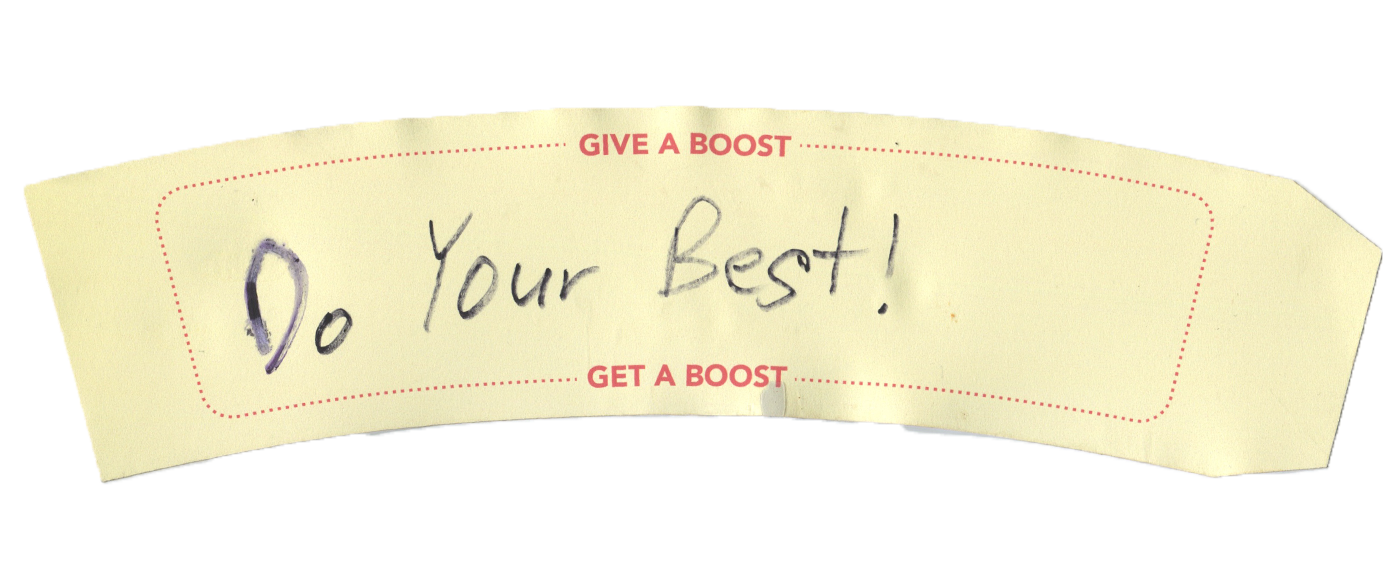 GIVE A BOOST
Do Your Best!
GET A BOOST